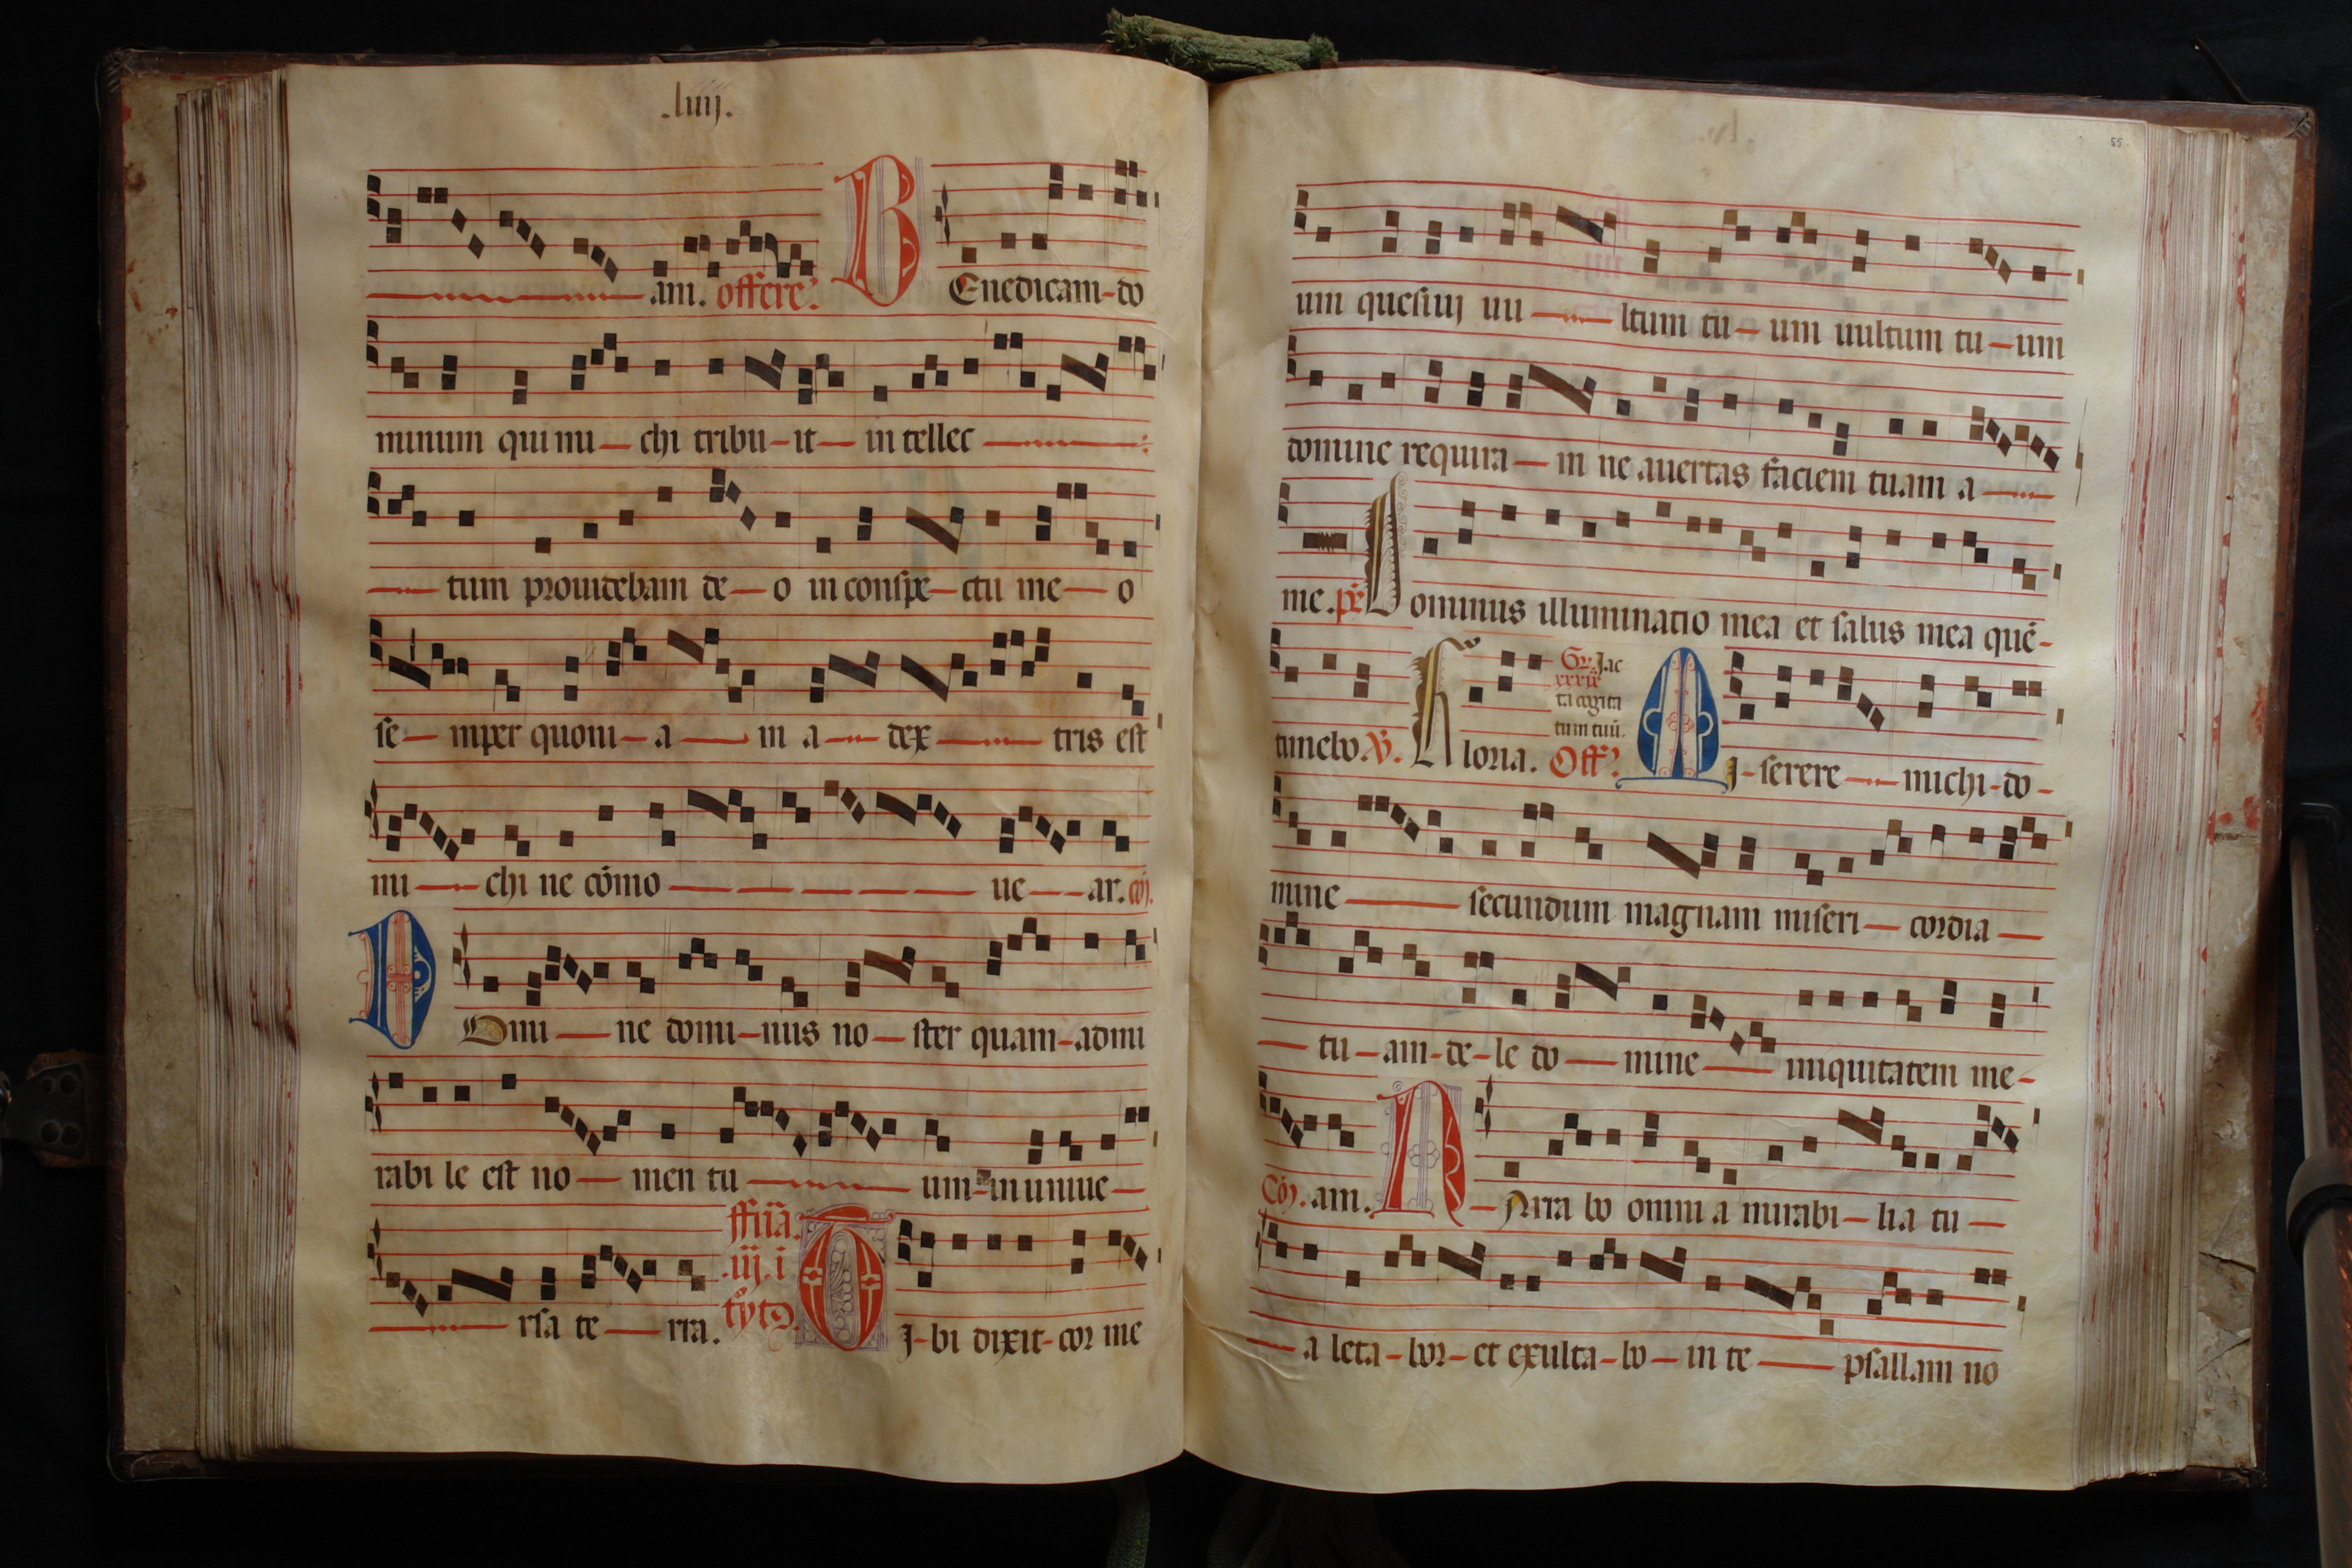 .liiij.
am. offere?
BEnedicam-do
minum qui mi-chi tribu-it-in tellec
tum prouidebam de-o in conspe-ctu me-o
se-mper quoni-a-m a-dex-tris est
mi-chi ne cōmo-ue-ar. cō).
DOmi-ne domi-nus no-ster quam-admi
rabi le est no-men tu-um-in uniue-
rsa te-rra.
ffiīa.
.iij. i
TI-bi dixit-cor me
55.
um quesiuj uu-ltum tu-um uultum tu-um
domine requira-m ne auertas faciem tuam a-
me. ps Dominus illuminatio mea et salus mea quē-
timebo. V. loria.
Gr. Jac
xxxix
ta cogita
tum tuū.
Off?
MI-serere-michi-do-
mine-secundum magnam miseri-cordia-
-tu-am-de-le do-mine-iniquitatem me-
Cō). am. NArra bo omni a mirabi-li a tu-
-a leta-bor-et exulta-bo-in te-psallam no